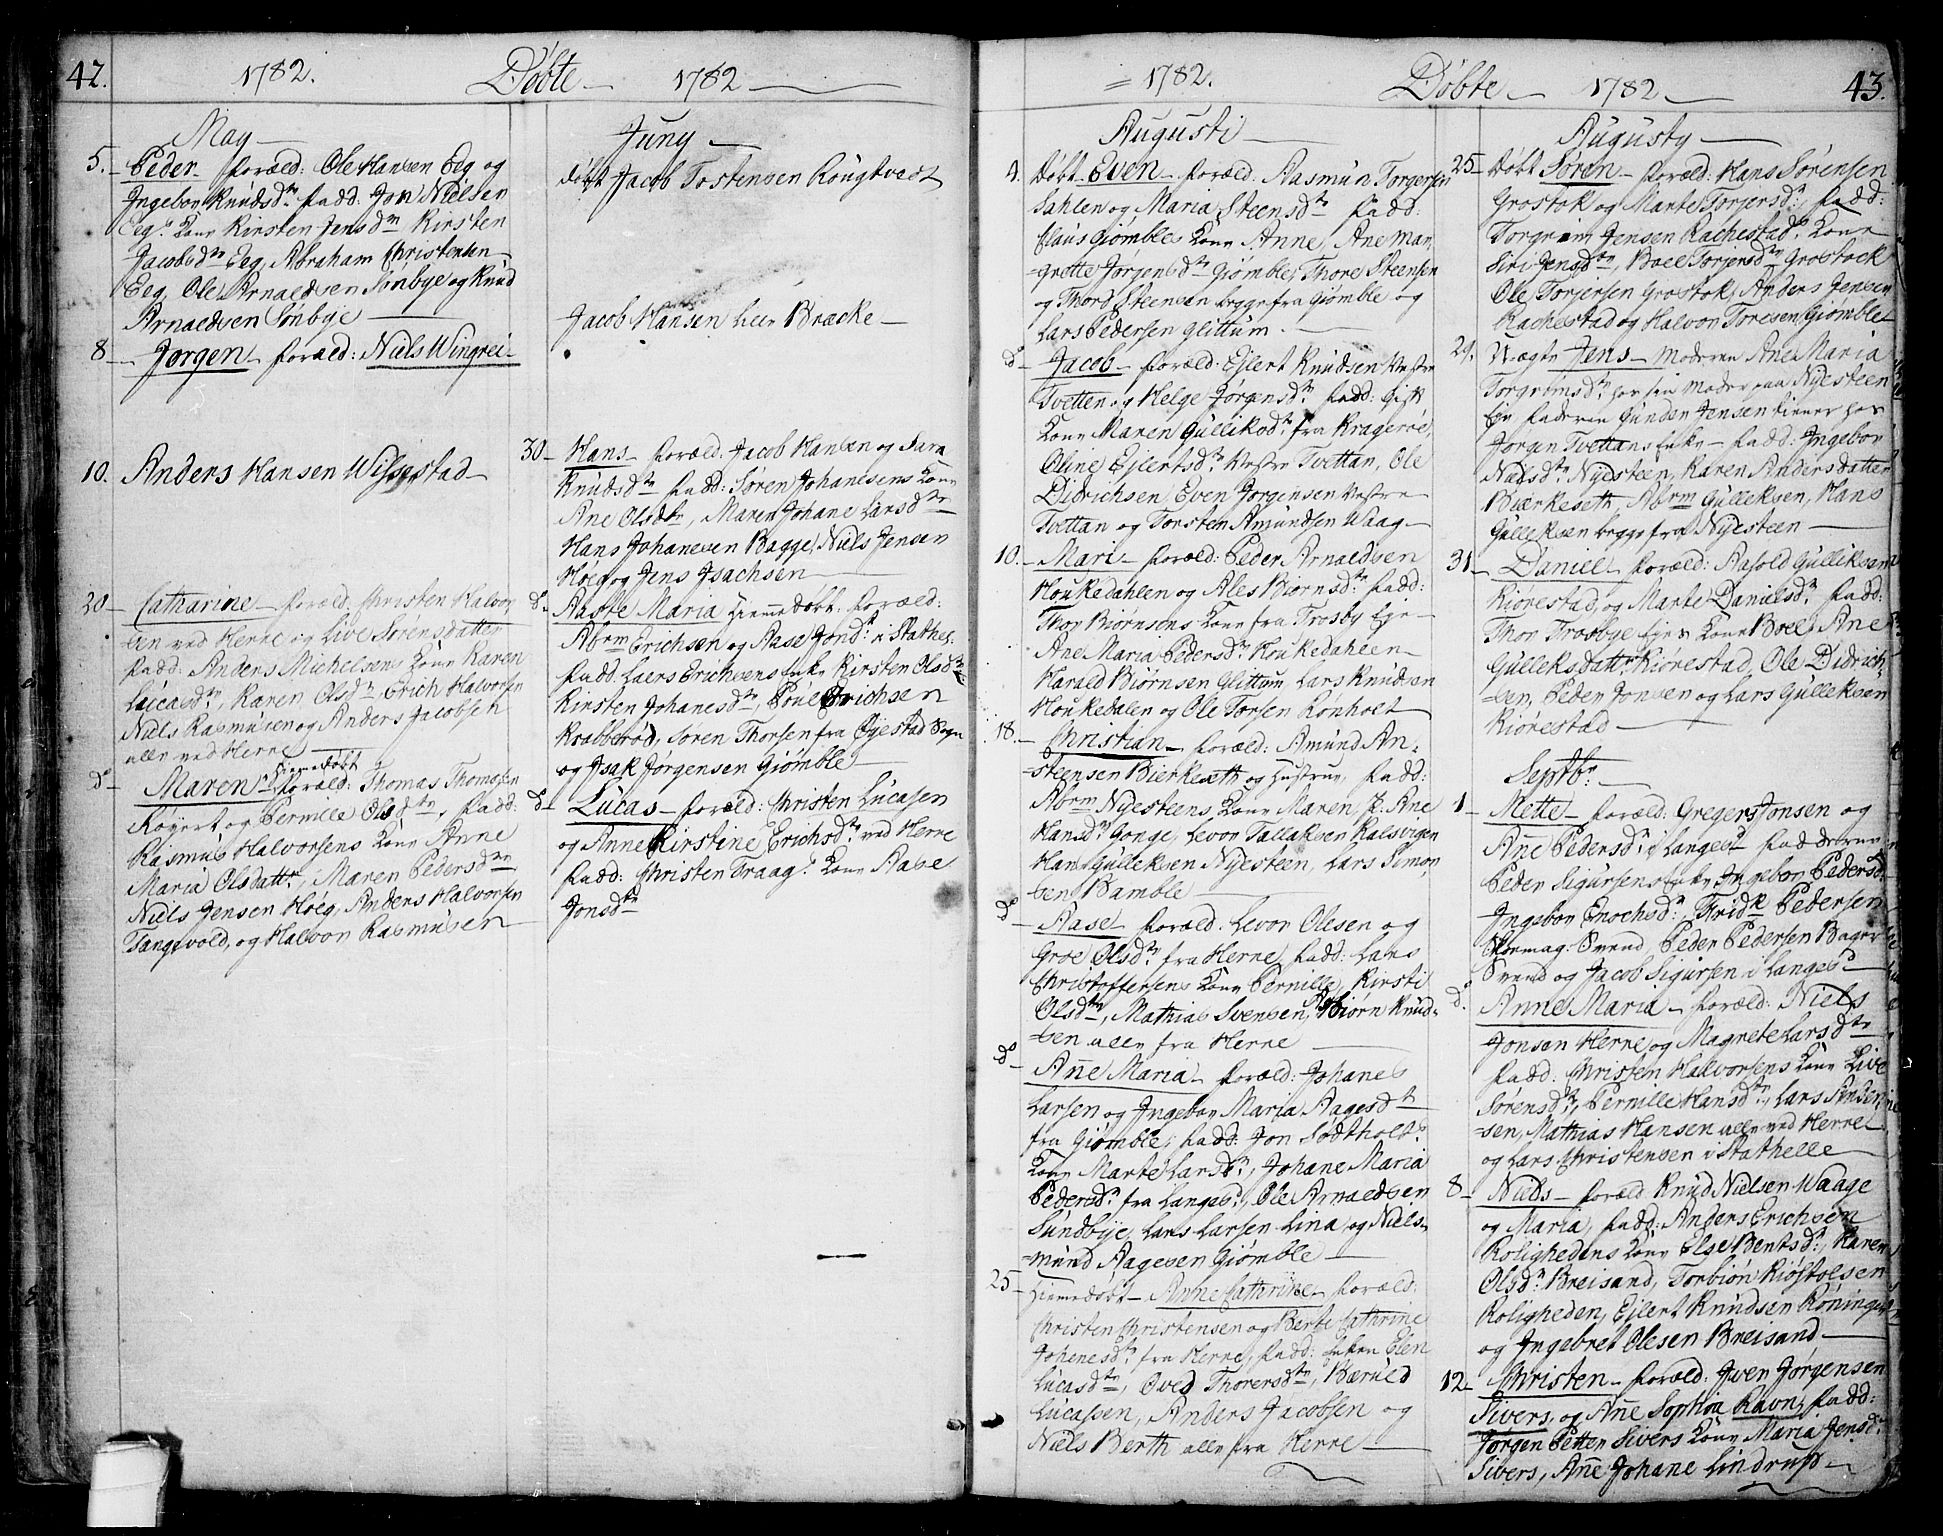 42. 1782. Döbte 1782
May
5. Peder foræld: Ole Hansen Eeg og
Ingebor Knudsdtr fadd: Jon Nielsen
Eegs Kone Kirsten Jensdtr Kirsten
Jacobsdtr Eeg, Abraham Christensen
Eeg, Ole Arnaldsen Sönbye og Knud
Arnaldsen Sönbye
8 Jørgen foræld: Niels Wingrei
10. Anders Hansen Wissestad
20 Catharine foræld: Christen Halvor
sen ved Herre og Live Sørensdatter
fadd: Anders Michelsens Kone Karen
Lucasdtr, Karen Olsdtr Erich Halvorsen
Niels Rasmusen og Anders Jacobsen
alle ved Herre
do Maren hiemedøbt foræld: Thomas Thomasen
Röyert og Pernille Olsdtr, fadd:
Rasmus Halvorsens Kone Anne
Maria Olsdattr, Maren Pedersdtr
Niels Jensen Höeg, Anders Halvorsen
Tangvald, og Halvor Rasmusen
Juny
döbt Jacob Tostensen Rougtvedt
Jacob Hansen Bracke
30 Hans foræld: Jacob Hansen og Sara
Knudsdtr fadd: Søren Johanesens Kone
Ane Olsdtr, Maren Johane Larsdtr
Hans Johanesen Bagge, Niels Jensen
Höeg og Jens Isachsen
do Aaste Maria hiemedöbt foræld:
Abrm Erichsen og Aase Jonsdr i Stathel.
fadd: Laers Erichsens Enke Kirsten Olsdtr
Kirsten Johanesdtr, Poul Erichsen
Krabberöd, Søren Thorsen fra Öyestad Sogn
og Isak Jørgensen Giömble
do Lucas foræld: Christen Lucasen
og Anne Kirstine Erichsdtr ved Herre
fadd: Christen Traags Kone Aase
Jonsdtr
1782. Döbte 1782 43.
Augusti
4. Döbt Even foræld: Aasmun Torgersen
Dahlen og Maria Steensdtr fadd:
Claus Giömbles Kone Anne, Ane Mar
grette Jørgensdtr Giömble, Thore Steensen
og Thord Steensen begge fra Giömble og
Lars Pedersen Glittum
do Jacob foræld: Ejlert Knudsen Vestre
Tvetten og Helge Jørgensdtr fadd: Gist
Kone Maren Gulliksdtr fra Kragerøe,
Oline Ejlertsdtr Vestre Tvettan, Ole
Didrichsen, Even Jorgensen Vestre
Tvettan og Torsten Amundsen Waag
10. Mari foræld: Peder Arnaldsen
Houkedahlen og Ales Biornsdtr fadd:
Thor Biørnsens Kone fra Trosby Eje
Ane Maria Pedersdtr Houkedahlen
Harald Biørnsen Glittum Lars Knudsen
Houkedalen og Ole Torsen Rönholt
18. Christian foræld: Amund An
steensen Bierkeseth og hustrue, fadd:
Abrm Nyesteens Kone Maren, P: Ane
Hansdtr Gonge, Levor Tallaksen Kalsvigen
Hans Gulleksen Nyesteen, Lars Simon
sen Bamble
do Aase foræld: Levor Olesen og
Groe Olsdtr fra Herre, fadd: Lars
Christoffersens Kone Pernille, Kirsti
Olsdtr, Mathias Svensen, Asbiørn Knud
sen alle fra Herre
do Anne Maria foræld: Johanes
Larsen og Ingebor Maria Aagesdtr
fra Giömble, fadd: Jon Södtholts
Kone Marte Larsdtr, Johane Maria
Pedersdtr fra Langes:, Ole Arnaldsen
Sundbye, Lars Larsen Lina, og Niels
mund Aagesen Giömble
25 Hiemedöbt Anne Cathrine foræld:
Christen Christensen og Berte Cathrine
Johenesdtr fra Herre, fadd: Enken Elen
Lucasdtr, Oved Thorersdtr, Baruld
Lucassen, Anders Jacobsen og
Niels Berth alle fra Herre
Augusty
25 Döbt Søren foræld: Hans Sörensen
Grostok og Marte Torjersdr: fadd:
Torgrim Jensen Rachestads Kone
Siri Jensdtr, Boel Torjersdtr Grostock
Ole Torjersen Grostok, Anders Jensen
Rachestad og Halvor Toresen Giömble
29. Uægte Jens Moderen Ane Maria
Torgrimsdtr hos sin Moder paa Nyesteen
Eje faderen Gunder Jensen tiener hos
Jörgen Tvettans Enke fadd: Ingebor
Nadsdtr Nyesteen, Karen Andersdatter
Biærkeseth, Abrm Gulleksen, Hans
Gulleksen begge fra Nyesteen
31 Daniel foræld: Aasold Gulliksen
Kiörestad, og Marte Danielsdtr fadd:
Thor Trosbye Ejes Kone Boel, Ane
Gulleksdattr Kiörestad, Ole Didrich
sen, Peder Jonsen og Lars Gulleksen
Kiörestad
Septbr
1 Mette foræld: Gregers Jonsen og
Ane Pedersdtr i Langesd fadderne
Peder Sigursens Enke Ingebor Pedersd.
Ingebor Enochsdtr, Fridk Pedersen
Skomag: Svend Peder Pedersen Bager
Svend og Jacob Sigursen i Langesd
do Anne Maria foræld: Niels
Jonsen Herre og Magrete Larsdtr
fadd: Christen Halvorsens Kone Live
Sørensdtr, Pernille Hansdtr, Lars Ander
sen, Mathias Hansen alle ved Herre
og Lars Christensen i Stathelle
8 Niels foræld Knud Nielsen Waage
og Maria, fadd: Anders Erichsen
Rolighedens Kone Else Bentsdtr, Karen
Olsdtr Breisand, Torbiön Kiöstolsen
Roligheden, Ejlert Knudsen Röninge
og Ingebret Olesen Breisand
12 Christen foræld: Iver Jørgensen
Sivers og Ane Sophia Ravn, fadd:
Jørgen Petter Sivers Kone Maria Jensdtr
Sivers, Ane Johane Lindrup